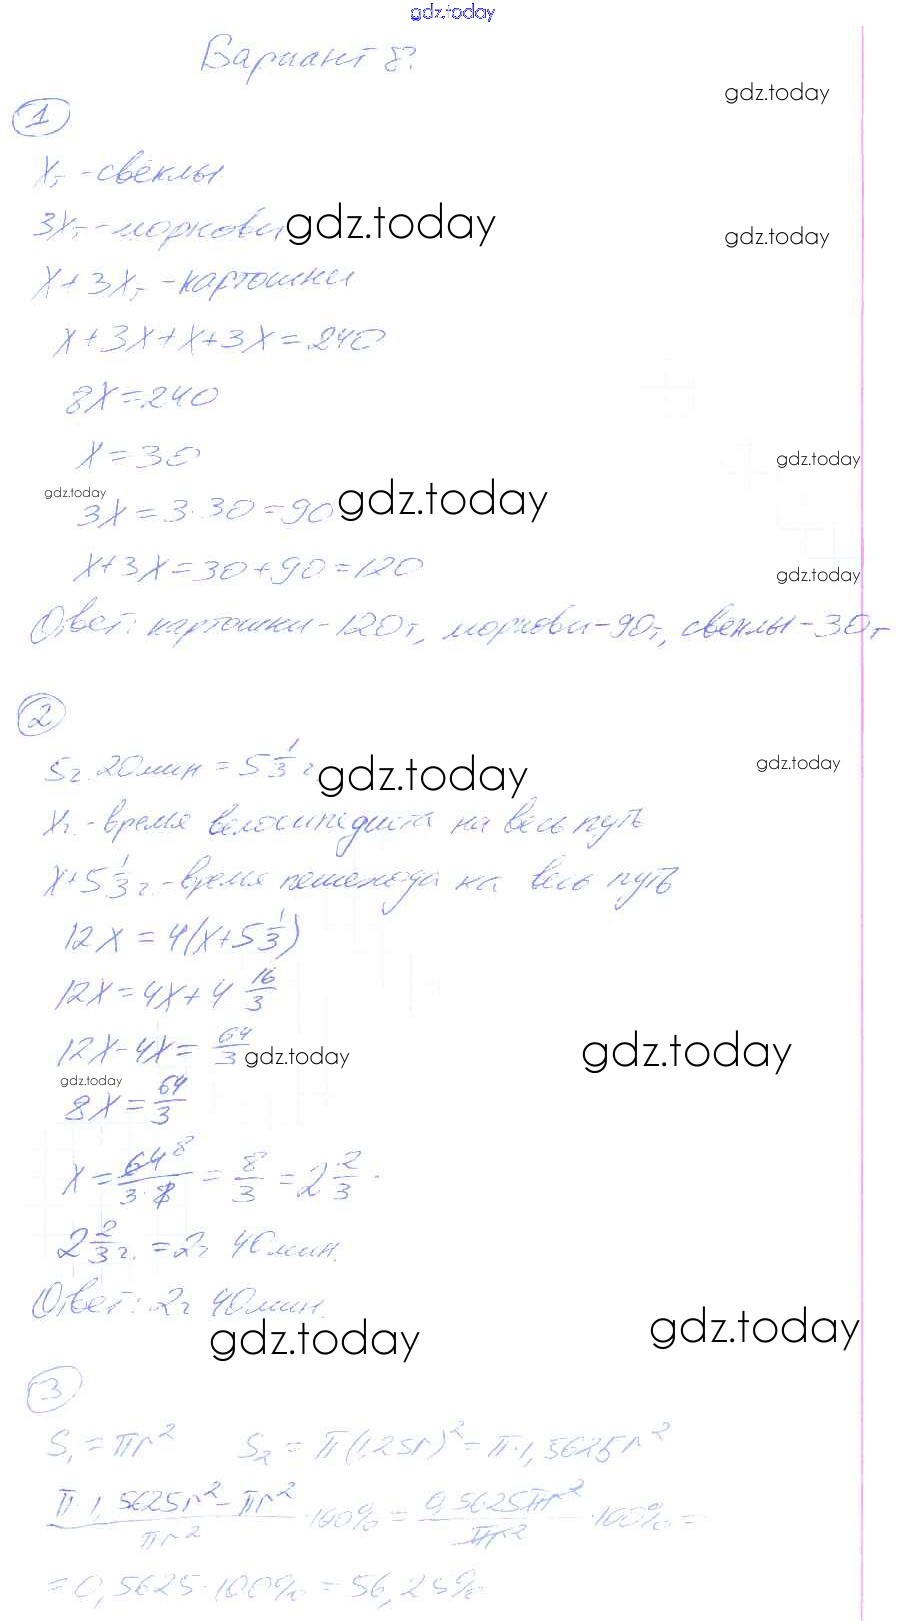 gdz.today
Вариант 8.
gdz.today
1
xт - свёклы
3xт - моркови gdz.today
gdz.today
x+3xт - картошки
x+3x+x+3x=240
8x=240
x=30
gdz.today
gdz.today
3x=3·30=90 gdz.today
x+3x=30+90=120
gdz.today
Ответ: картошки-120т, моркови-90т, свеклы-30т
2
5ч 20мин = 5 1/3 ч gdz.today
gdz.today
xч. - время велосипедиста на весь путь
x+5 1/3 ч. - время пешехода на весь путь
12x = 4(x+5 1/3)
12x=4x+4 16/3
12x-4x= 64/3 gdz.today
gdz.today
gdz.today
8x = 64/3
x = 64 8/3·8 = 8/3 = 2 2/3.
2 2/3 ч. = 2ч 40мин.
Ответ: 2ч 40мин.
gdz.today
gdz.today
3
S₁ = πr² S₂ = π(1,25r)² = π·1,5625r²
π 1,5625r² - πr²/πr² ·100% = 0,5625πr²/πr² ·100% =
= 0,5625·100% = 56,25%